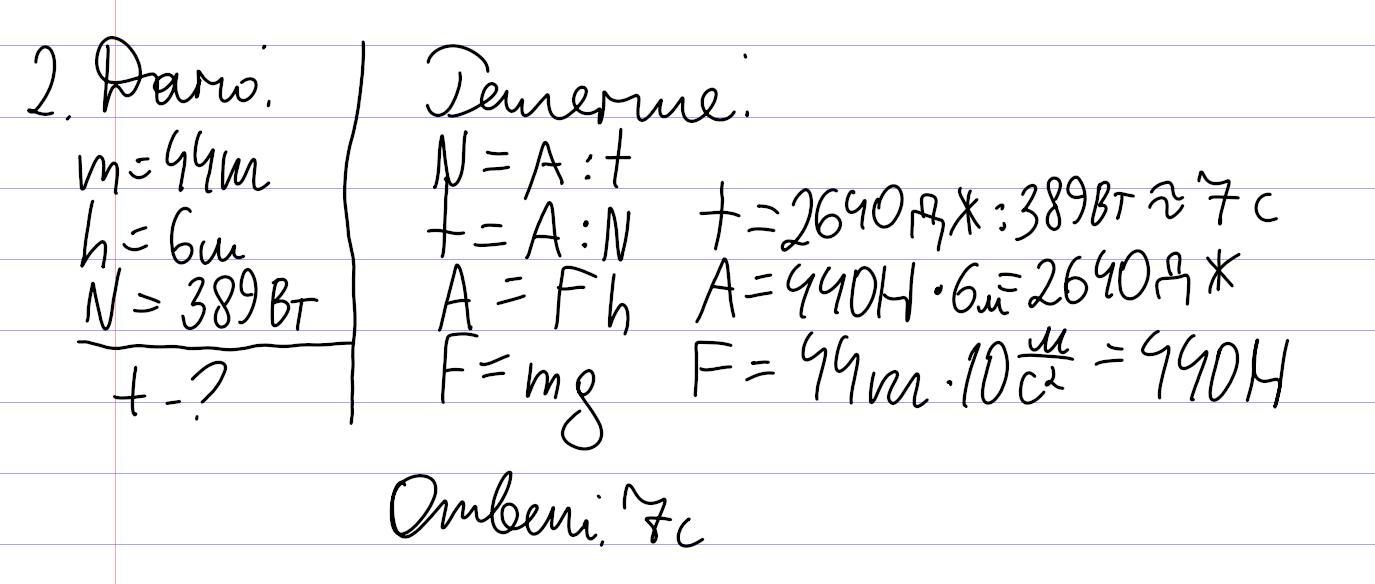 2. Дано:
m=44т
h=6м
N=389Вт
t-?
Решение:
N=A:t
t=A:N t=2640Дж:389Вт≈7с
A=Fh A=440Н·6м=2640Дж
F=mg F=44т·10м/с²=440Н
Ответ: 7с